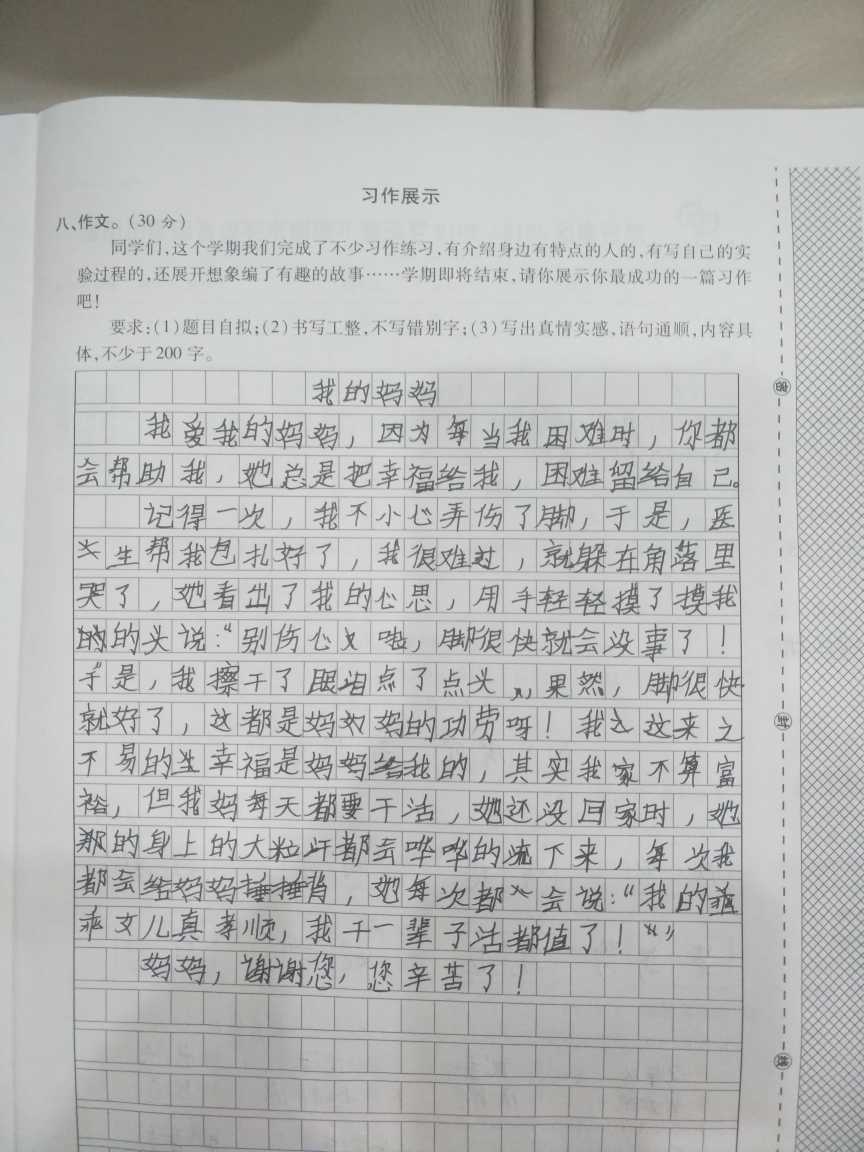 习作展示
八、作文。(30 分)
同学们,这个学期我们完成了不少习作练习,有介绍身边有特点的人的,有写自己的实
验过程的,还展开想象编了有趣的故事……学期即将结束,请你展示你最成功的一篇习作
吧!
要求:(1)题目自拟;(2)书写工整,不写错别字;(3)写出真情实感,语句通顺,内容具
体,不少于 200 字。
我的妈妈
我爱我的妈妈，因为每当我困难时，你都
会帮助我，她总是把幸福给我，困难留给自己。
记得一次，我不小心弄伤了脚，于是，医
生帮我包扎好了，我很难过，就躲在角落里
哭了，她看出了我的心思，用手轻轻摸了摸我
的头说：“别伤心 啦，脚很快就会没事了！
于”是，我擦干了眼泪点了点头，果然，脚很快
就好了，这都是妈 妈的功劳呀！我 这来之
不易的 幸福是妈妈给我的，其实我家不算富
裕，但我妈每天都要干活，她还没回家时，她
那的身上的大粒汗都会哗哗的流下来，每次我
都会给妈妈捶捶背，她每次都 会说：“我的乖
乖女儿真孝顺，我干一辈子活都值了！”
妈妈，谢谢您，您辛苦了！
密
封
线